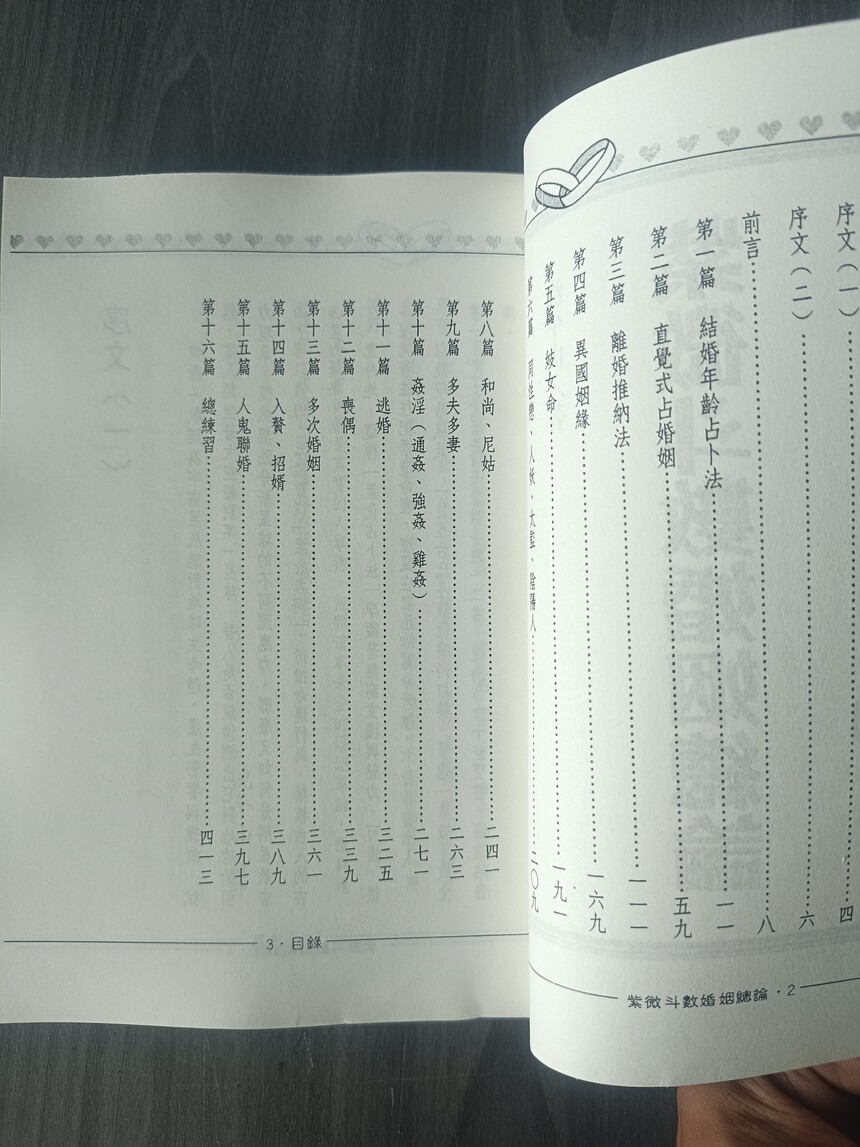 序文(一)……四
序文(二)……六
前言……八
第一篇 結婚年齡占卜法……一一
第二篇 直覺式占婚姻……五九
第三篇 離婚推納法……一一一
第四篇 異國姻緣……一六九
第五篇 妓女命……一九一
第六篇 同性戀、人妖、太監、陰陽人……二〇九
紫微斗數婚姻總論・2
第八篇 和尚、尼姑……二四一
第九篇 多夫多妻……二六三
第十篇 姦淫(通姦、強姦、雞姦)……二七一
第十一篇 逃婚……三二五
第十二篇 喪偶……三三九
第十三篇 多次婚姻……三六一
第十四篇 入贅、招婿……三八九
第十五篇 人鬼聯婚……三九七
第十六篇 總練習……四一三
3・目錄